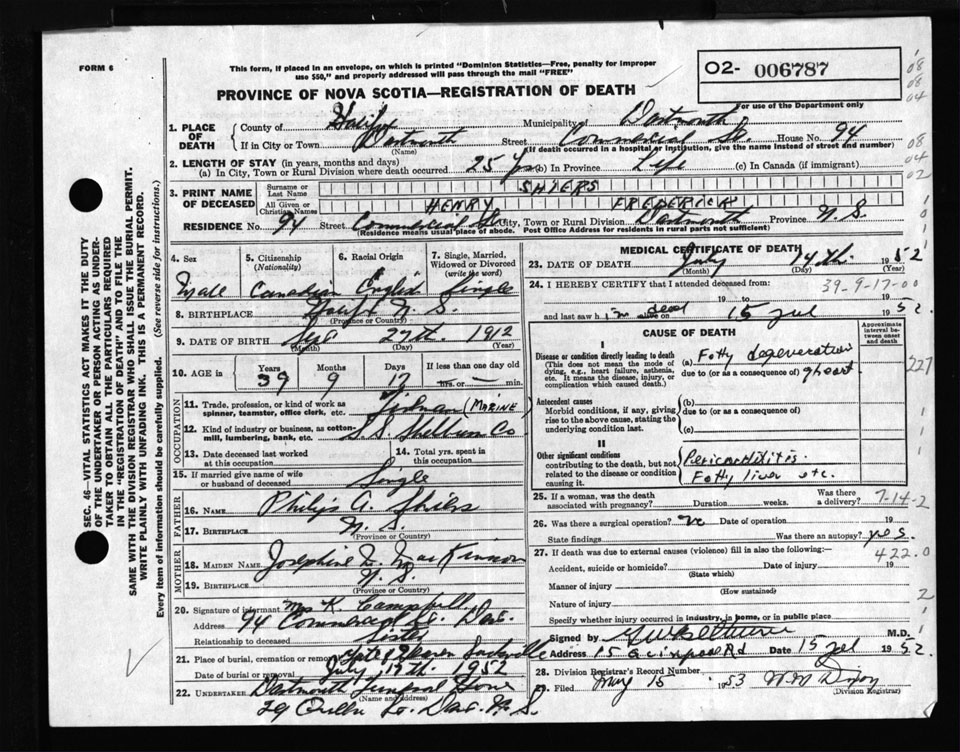 FORM 6
This form, if placed in an envelope, on which is printed "Dominion Statistics—Free, penalty for improper
use $50," and properly addressed will pass through the mail "FREE"
O2- 006787
For use of the Department only
PROVINCE OF NOVA SCOTIA—REGISTRATION OF DEATH
1. PLACE OF DEATH
County of Halifax Municipality of Dartmouth
If in City or Town Dartmouth (Name) Street Commercial St. House No. 94
(If death occurred in a hospital or institution, give the name instead of street and number)
2. LENGTH OF STAY (in years, months and days)
(a) In City, Town or Rural Division where death occurred 25 yrs (b) in Province Life (c) In Canada (if immigrant)
3. PRINT NAME OF DECEASED
Surname or Last Name SHIERS
All Given or Christian Names HENRY FREDERICK
RESIDENCE No. 94 Street Commercial St. City, Town or Rural Division Dartmouth Province N.S.
(Residence means usual place of abode. Post Office Address for residents in rural parts not sufficient)
4. Sex Male
5. Citizenship (Nationality) Canadian
6. Racial Origin English
7. Single, Married, Widowed or Divorced (write the word) Single
8. BIRTHPLACE Halifax N.S.
(Province or Country)
9. DATE OF BIRTH Sept 27th. 1912
(Month) (Day) (Year)
10. AGE in Years 39 Months 9 Days 17 If less than one day old hrs. or — min.
OCCUPATION
11. Trade, profession, or kind of work as spinner, teamster, office clerk, etc. (MARINE)
12. Kind of industry or business, as cotton-mill, lumbering, bank, etc. S.S. Co
13. Date deceased last worked at this occupation
14. Total yrs. spent in this occupation
15. If married give name of wife or husband of deceased Single
FATHER
16. NAME Philip A. Shiers
17. BIRTHPLACE N.S.
(Province or Country)
MOTHER
18. MAIDEN NAME Josephine MacKinnon
19. BIRTHPLACE N.S.
(Province or Country)
20. Signature of informant Mrs K. Campbell
Address 94 Commercial St. Dart.
Relationship to deceased Sister
21. Place of burial, cremation or removal Gate of Heaven Sackville
Date of burial or removal July 17th. 1952
22. UNDERTAKER Dartmouth Funeral Home
(Name and address)
29 St. Dart. N.S.
MEDICAL CERTIFICATE OF DEATH
23. DATE OF DEATH July 14th. 1952
(Month) (Day) (Year)
24. I HEREBY CERTIFY that I attended deceased from: 39-9-17-00
19
and last saw h im dead alive on 15 Jul 1952.
CAUSE OF DEATH
Approximate interval between onset and death
I
Disease or condition directly leading to death
(This does not mean the mode of dying, e.g., heart failure, asthenia, etc. It means the disease, injury, or complication which caused death.)
(a) Fatty degeneration
due to (or as a consequence of) of heart
227
Antecedent causes
Morbid conditions, if any, giving rise to the above cause, stating the underlying condition last.
(b)
due to (or as a consequence of)
(c)
II
Other significant conditions contributing to the death, but not related to the disease or condition causing it.
Pericarditis
Fatty liver etc.
25. If a woman, was the death associated with pregnancy? Duration weeks. Was there a delivery? 7-14-2
26. Was there a surgical operation? no Date of operation 19
State findings Was there an autopsy? yes.
27. If death was due to external causes (violence) fill in also the following:—
422.0
Accident, suicide or homicide? Date of injury 19
(State which)
Manner of injury
(How sustained)
Nature of injury
Specify whether injury occurred in industry, in home, or in public place
Signed by M.D.
Address 15 Quinpool Rd Date 15 Jul 1952.
28. Division Registrar's Record Number
Filed May 15 1953 W.M. Dixon
(Division Registrar)
SEC. 46—VITAL STATISTICS ACT MAKES IT THE DUTY
OF THE UNDERTAKER OR PERSON ACTING AS UNDER-
TAKER TO OBTAIN ALL THE PARTICULARS REQUIRED
IN THE "REGISTRATION OF DEATH" AND TO FILE THE
SAME WITH THE DIVISION REGISTRAR WHO SHALL ISSUE THE BURIAL PERMIT.
WRITE PLAINLY WITH UNFADING INK. THIS IS A PERMANENT RECORD.
Every item of information should be carefully supplied. (See reverse side for instructions.)
08
08
04
08
04
02